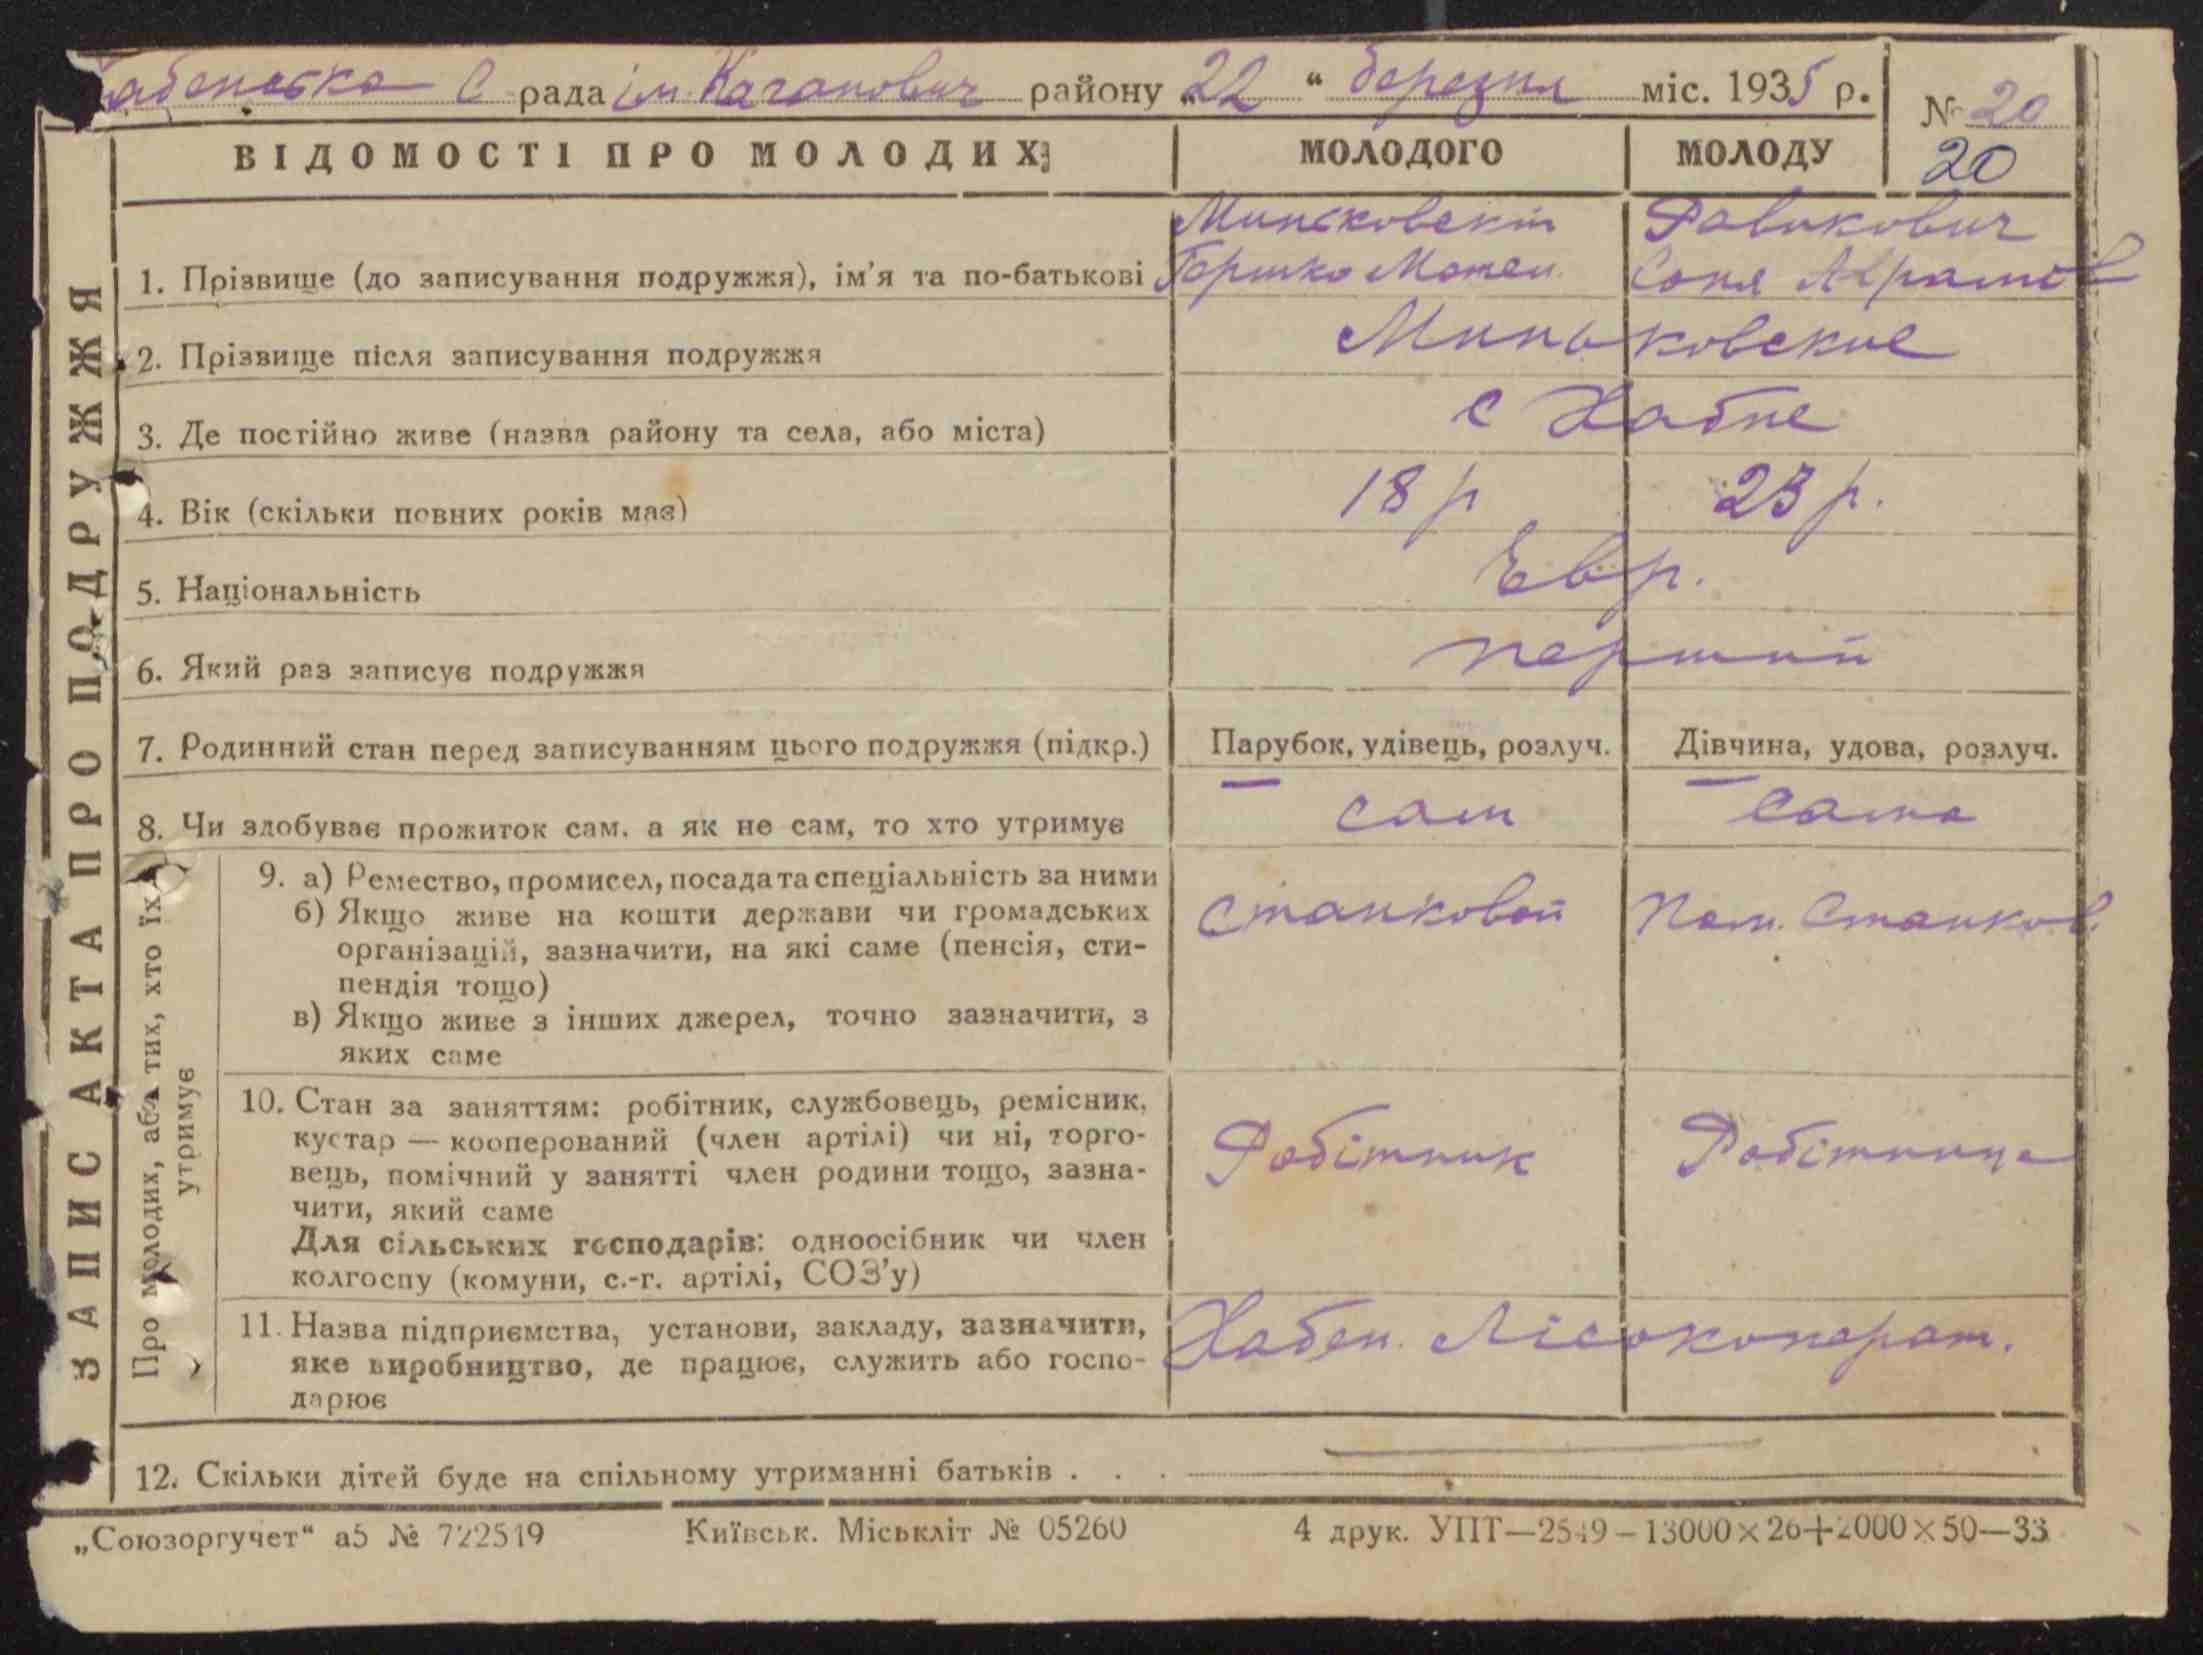 Хабенська С рада ім. Кагановича району „22“ березня міс. 1935 р.
№ 20
20
ВІДОМОСТІ ПРО МОЛОДИХ МОЛОДОГО МОЛОДУ
ЗАПИС АКТА ПРО ПОДРУЖЖЯ
Миньковский Равикович
1. Прізвище (до записування подружжя), ім’я та по-батькові Гершко Мотел. Соня Аврамов
2. Прізвище після записування подружжя Миньковские
3. Де постійно живе (назва району та села, або міста) с Хабне
4. Вік (скільки повних років має) 18 р 23 р.
5. Національність Евр.
6. Який раз записує подружжя перший
7. Родинний стан перед записуванням цього подружжя (підкр.) Парубок, удівець, розлуч. Дівчина, удова, розлуч.
8. Чи здобуває прожиток сам, а як не сам, то хто утримує сам сама
Про молодих, або тих, хто їх
утримує
9. а) Ремество, промисел, посада та спеціальність за ними
б) Якщо живе на кошти держави чи громадських Станковой Пом. Станков.
організацій, зазначити, на які саме (пенсія, сти-
пендія тощо)
в) Якщо живе з інших джерел, точно зазначити, з
яких саме
10. Стан за заняттям: робітник, службовець, ремісник,
кустар — кооперований (член артілі) чи ні, торго- Робітник Робітниця
вець, помічний у занятті член родини тощо, зазна-
чити, який саме
Для сільських господарів: одноосібник чи член
колгоспу (комуни, с.-г. артілі, СОЗ’у)
11. Назва підприємства, установи, закладу, зазначити, Хабен. Лісокоперат.
яке виробництво, де працює, служить або госпо-
дарює
12. Скільки дітей буде на спільному утриманні батьків . . . —
„Союзоргучет“ а5 № 722519 Київськ. Міськліт № 05260 4 друк. УПТ—2549—13000×26+2000×50—33